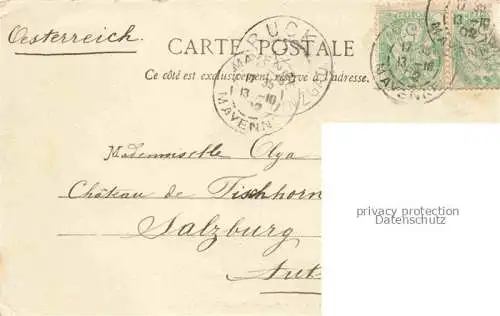 Oesterreich.
CARTE POSTALE
Ce côté est exclusivement réservé à l'adresse.
BRUCK
MAYENNE
17 35
13 -10
02
MAYENNE
17 35
13 -10
02
MAYENNE
17 35
13 -10
02
Mademoiselle Olga
Château de Fischhorn
Salzburg
privacy protection
www.akpool.de